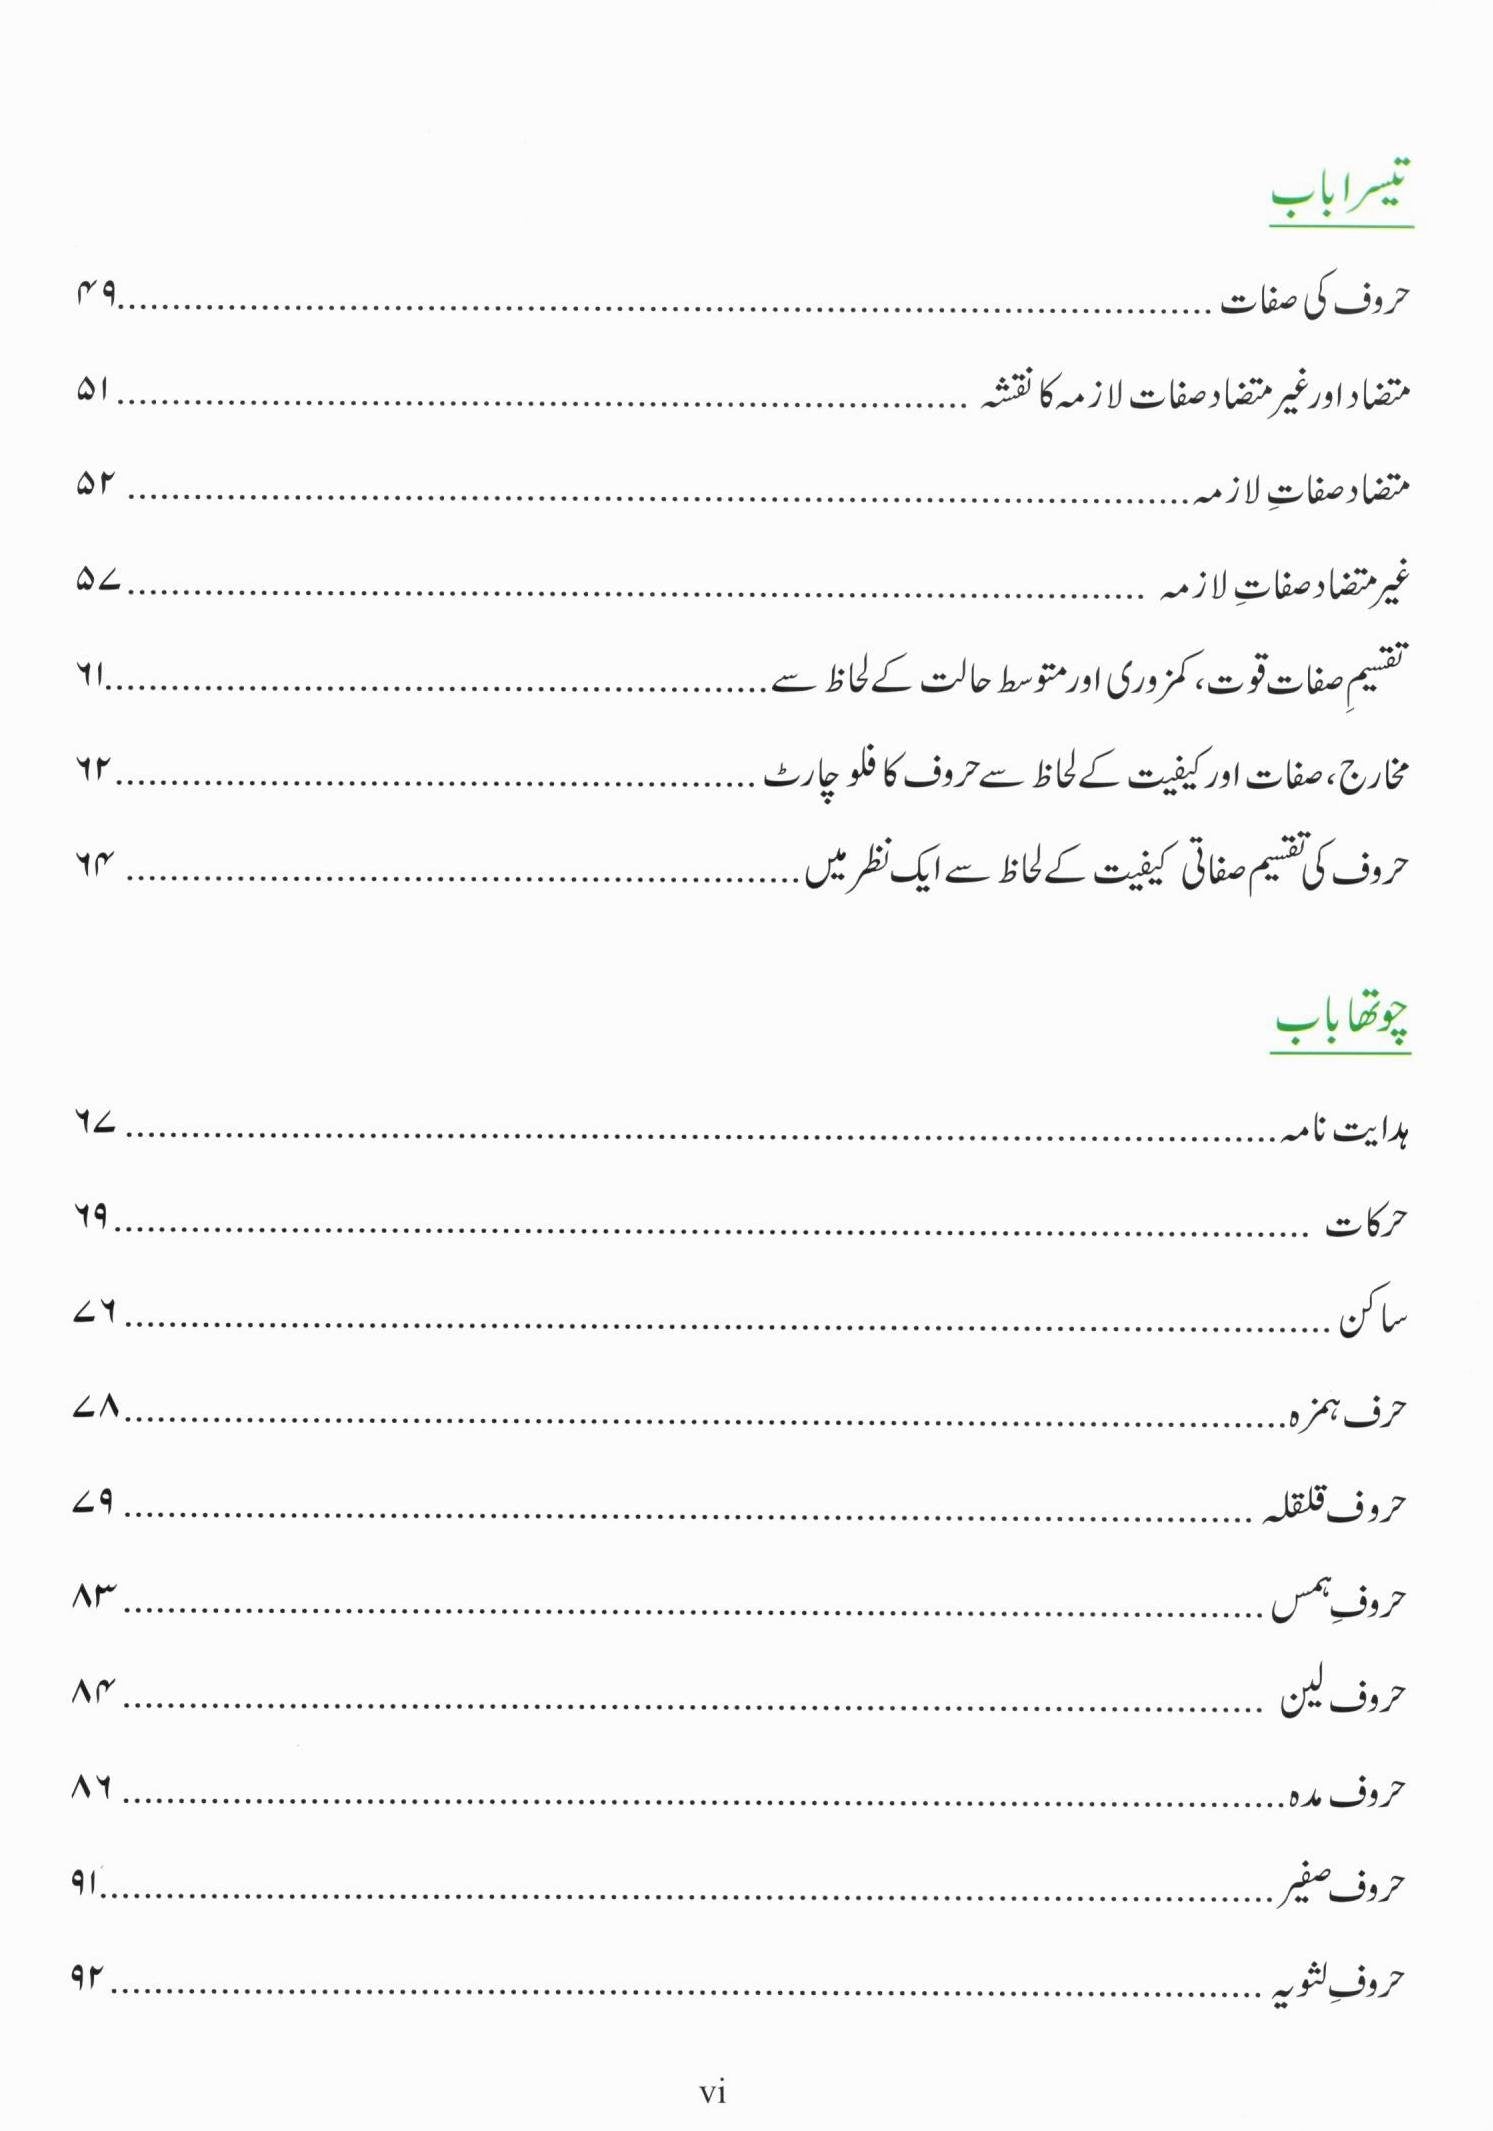 تیسرا باب
حروف کی صفات ........................ ۴۹
متضاد اور غیر متضاد صفات لازمہ کا نقشہ ........................ ۵۱
متضاد صفاتِ لازمہ ........................ ۵۲
غیر متضاد صفاتِ لازمہ ........................ ۵۷
تقسیمِ صفات قوت، کمزوری اور متوسط حالت کے لحاظ سے ........................ ۶۱
مخارج، صفات اور کیفیت کے لحاظ سے حروف کا فلو چارٹ ........................ ۶۲
حروف کی تقسیم صفاتی کیفیت کے لحاظ سے ایک نظر میں ........................ ۶۴
چوتھا باب
ہدایت نامہ ........................ ۶۷
حرکات ........................ ۶۹
ساکن ........................ ۷۶
حرف ہمزہ ........................ ۷۸
حروف قلقلہ ........................ ۷۹
حروفِ ہمس ........................ ۸۳
حروف لین ........................ ۸۴
حروف مدہ ........................ ۸۶
حروف صفیر ........................ ۹۱
حروفِ لثویہ ........................ ۹۲
vi